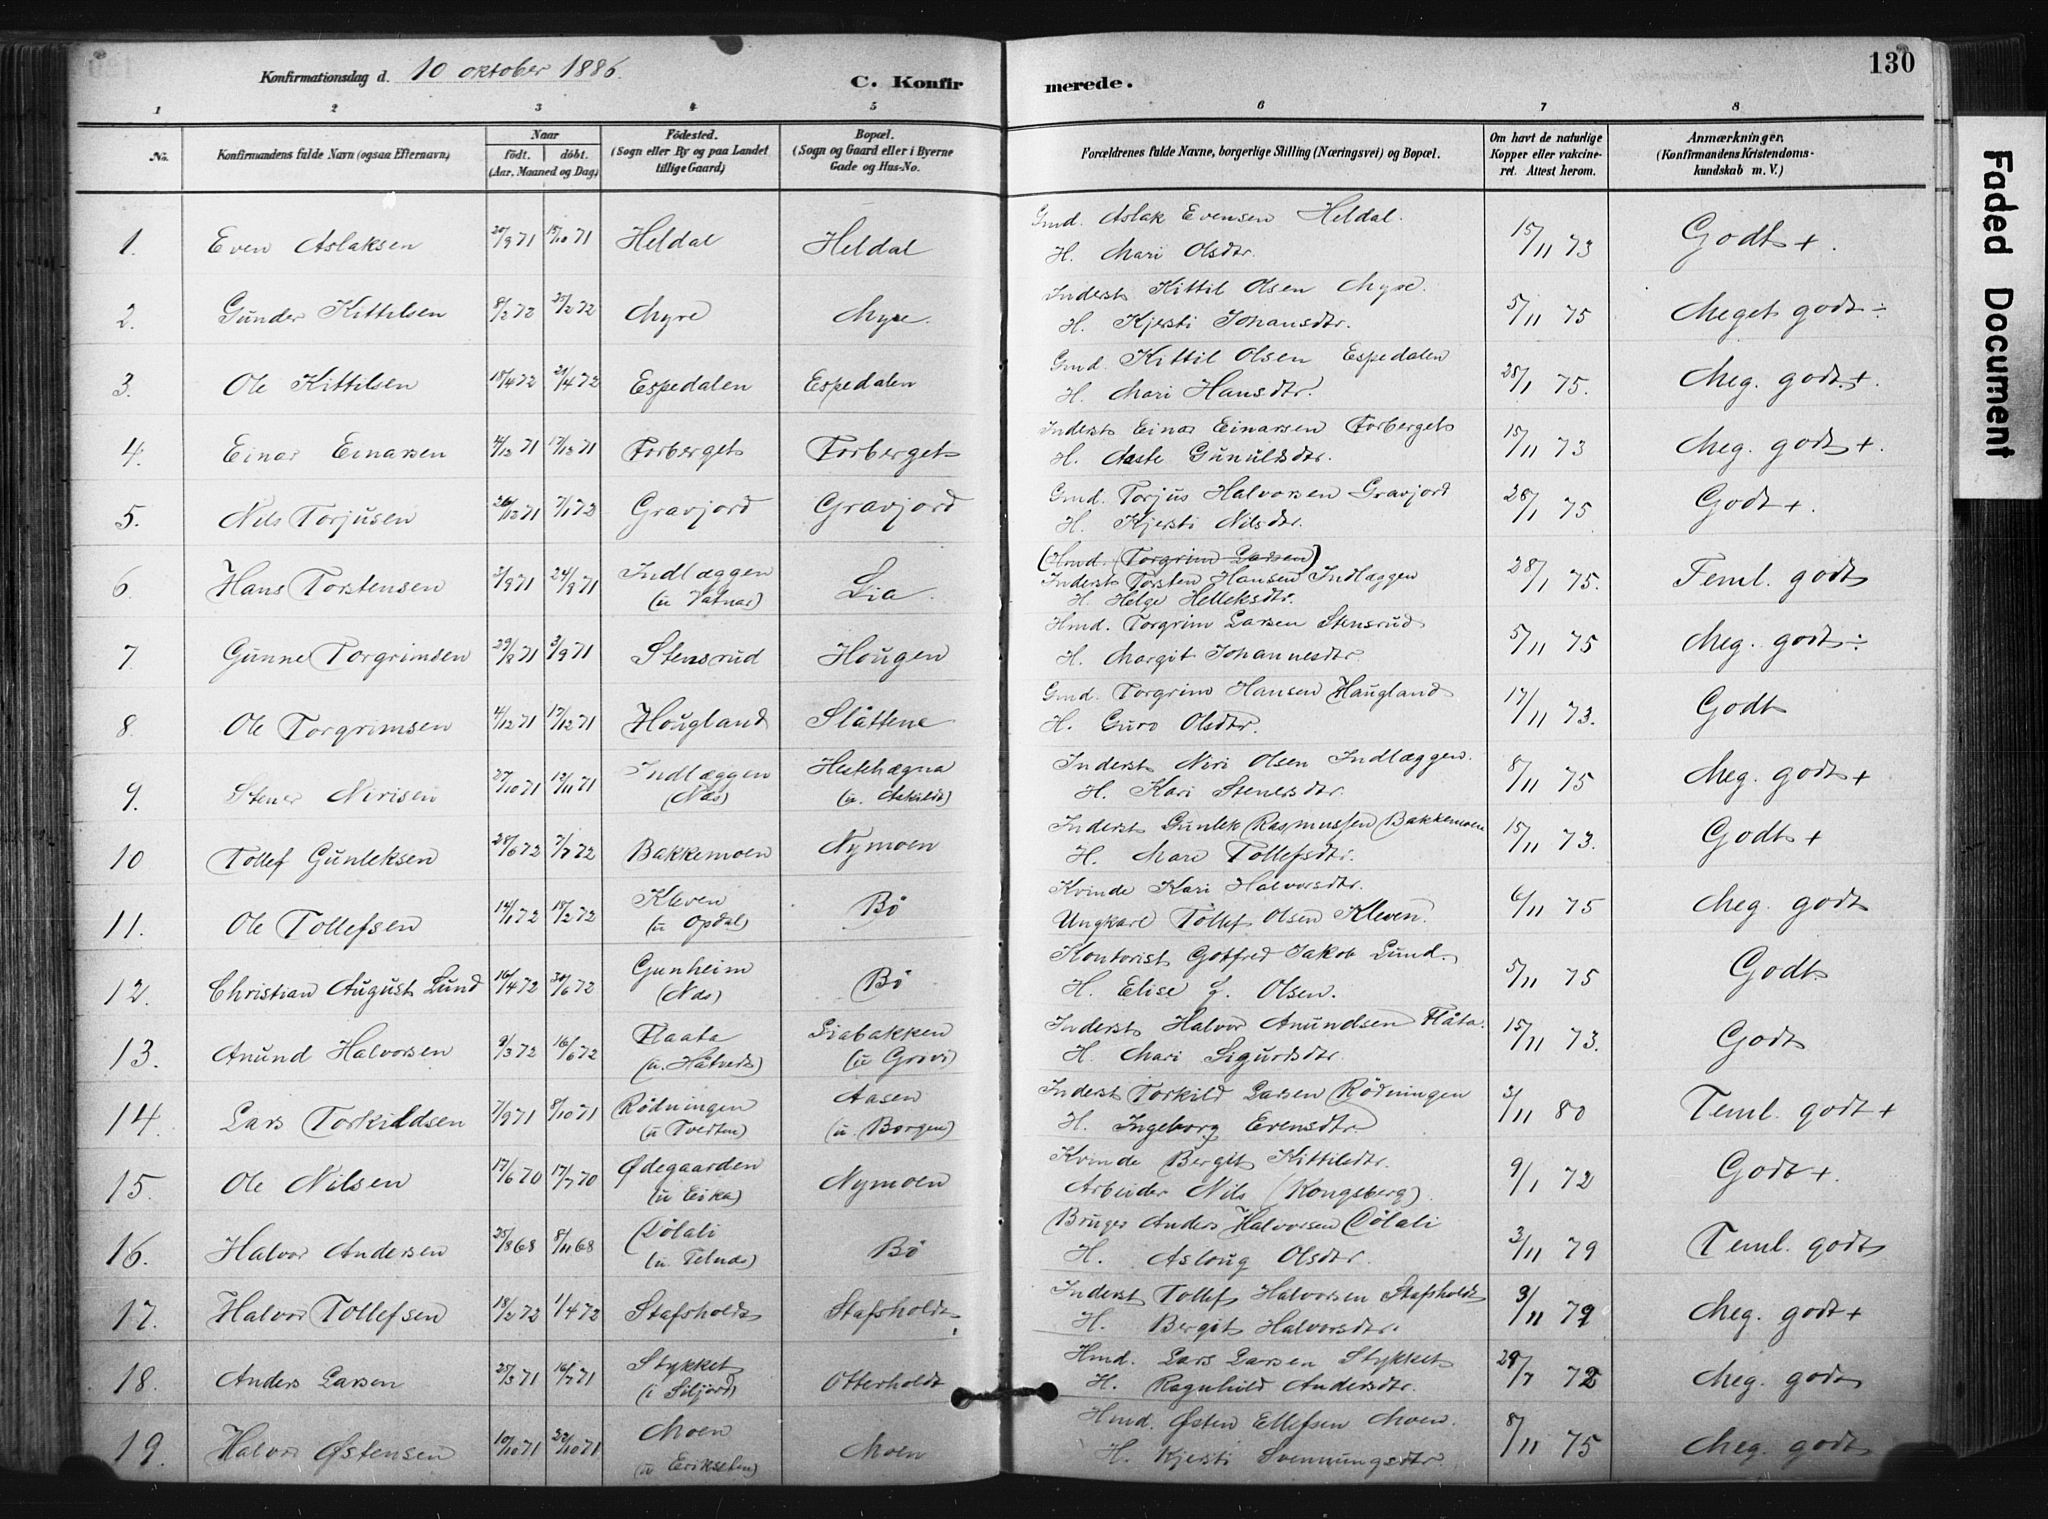 Konfirmationsdag d. 10 oktober 1886.
C. Konfirmerede.
130
1 2 3 4 5 6 7 8
No. Konfirmandens fulde Navn (ogsaa Efternavn) Naar födt. döbt. (Aar, Maaned og Dag) Födested. (Sogn eller By og paa Landet tillige Gaard) Bopæl. (Sogn og Gaard eller i Byerne Gade og Hus-No. Forældrenes fulde Navne, borgerlige Stilling (Næringsvei) og Bopæl. Om havt de naturlige Kopper eller vakcineret. Attest herom. Anmærkninger. (Konfirmandens Kristendomskundskab m. V.)
1. Even Aslaksen 20/9 71 15/10 71 Heldal Heldal Gmd. Aslak Evensen Heldal. 15/11 73 Godt +.
H. Mari Olsdtr.
2. Gunder Kittilsen 8/2 72 25/2 72 Myre Myre. Inderst Kittil Olsen Myre. 5/11 75 Meget godt ÷
H. Kjersti Johansdtr.
3. Ole Kittilsen 15/4 72 21/4 72 Espedalen Espedalen Gmd. Kittil Olsen Espedalen 28/1 75. Meg. godt +.
H. Mari Hansdtr.
4. Einar Einarsen 4/12 71 17/12 71 Forberget Forberget Inderst Einar Einarsen Forberget 15/11 73 Meg. godt +.
H. Aaste Gunuldsdtr.
5. Nils Torjusen 26/12 71 7/1 72 Gravjord Gravjord Gmd. Torjus Halvorsen Gravjord 26/1 75. Godt +.
H. Kjersti Nilsdtr.
(Hmd. (Torgrim Larsen)
6. Hans Torstensen 3/9 71 24/9 71 Indlæggen Lia. Inderst Torsten Hansen Indlæggen 28/1 75. Teml. godt
(u Vatnar) H. Helge Helleksdtr.
7. Gunne Torgrimsen 29/8 71 3/9 71 Stensrud Hougen Hmd. Torgrim Larsen Stensrud 5/11 75 Meg. godt ÷
H. Margit Johannesdtr.
8. Ole Torgrimsen 4/12 71 17/12 71 Hougland Slåttene Gmd. Torgrim Hansen Haugland 17/11 73. Godt
H. Guro Olsdtr.
9. Stener Nirisen 27/10 71 12/11 71 Indlæggen Hestehægna Inderst Niri Olsen Indlæggen. 8/11 75 Meg. godt +
(Næs) (u. Askildt) H. Kari Stenersdtr.
10 Tollef Gunleksen 28/6 72 7/7 72 Bakkemoen Nymoen Inderst Gunlek Rasmussen Bakkemoen 15/11 73. Godt +
H. Mari Tollefsdtr.
11. Ole Tollefsen 14/1 72 18/2 72 Kleven Bö Kvinde Kari Halvorsdtr. 6/11 75 Meg. godt
(u Opdal) Ungkarl Tollef Olsen Kleven.
12. Christian August Lund 16/4 72 30/6 72 Gunheim Bö Kontorist Gotfred Jakob Lund. 5/11 75 Godt
(Næs) H. Elise G. Olsen.
13. Anund Halvorsen 9/3 72 16/6 72 Flaata Liabakken Inderst Halvor Anundsen Flåta. 15/11 73. Godt
(u. Håtvedt) (u Grivi) H. Mari Sigurdsdtr.
14. Lars Torkildsen 7/9 71 8/10 71 Rödningen Aasen Inderst Torkild Larsen Rödningen 3/11 80 Teml. godt +
(u Tveiten) (u. Borgen) H. Ingeborg Evensdtr.
15. Ole Nilsen 17/6 70 17/7 70 Ødegaarden Nymoen Kvinde Bergit Kittilsdtr. 9/1 72 Godt +.
(u Eika) Arbeider Nils (Kongsberg).
16. Halvor Andersen 25/8 68 8/11 68 Dölali Bö Bruger Anders Halvorsen Dölali 3/11 79 Teml. godt
(u. Telnæs) H. Asloug Olsdtr.
17. Halvor Tollefsen 18/2 72 1/4 72 Stafsholdt Stafsholdt. Inderst Tollef Halvorsen Stafsholdt 3/11 72 Meg. godt +
H. Bergit Halvorsdtr.
18. Anders Larsen 25/3 71 16/7 71 Stykket Otterholdt Hmd. Lars Larsen Stykket 29/7 72 Meg. godt
(i Siljord) H. Ragnhild Andersdtr.
19. Halvor Østensen 10/10 71 22/10 71 Moen Moen Hmd. Østen Ellefsen Moen. 8/11 75 Meg. godt
(u Eriksteen) H. Kjersti Svennungsdtr.
Faded Document